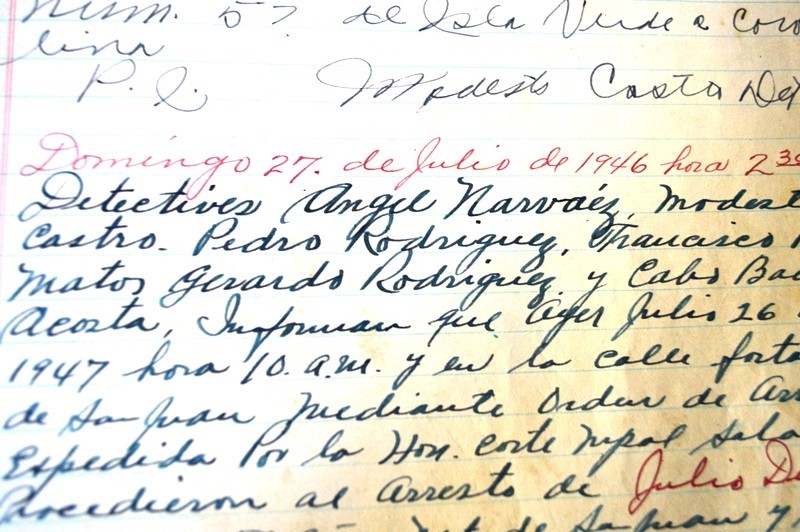 Núm. 57 de Isla Verde a Caro
lina
P. I. Modesto Casta Det
Domingo 27. de Julio de 1946 hora 2 30
Detectives Angel Narvaéz, Modest
Castro. Pedro Rodriguez, Francisco
Matos Gerardo Rodriguez y Cabo
Acosta, Informan que Ayer Julio 26
1947 hora 10. a.m. y en la calle forta
de San Juan mediante Orden de Arr
Expedida Por la Hon. Corte Mpal Sala
Procedieron al Arresto de Julio
de San Juan y